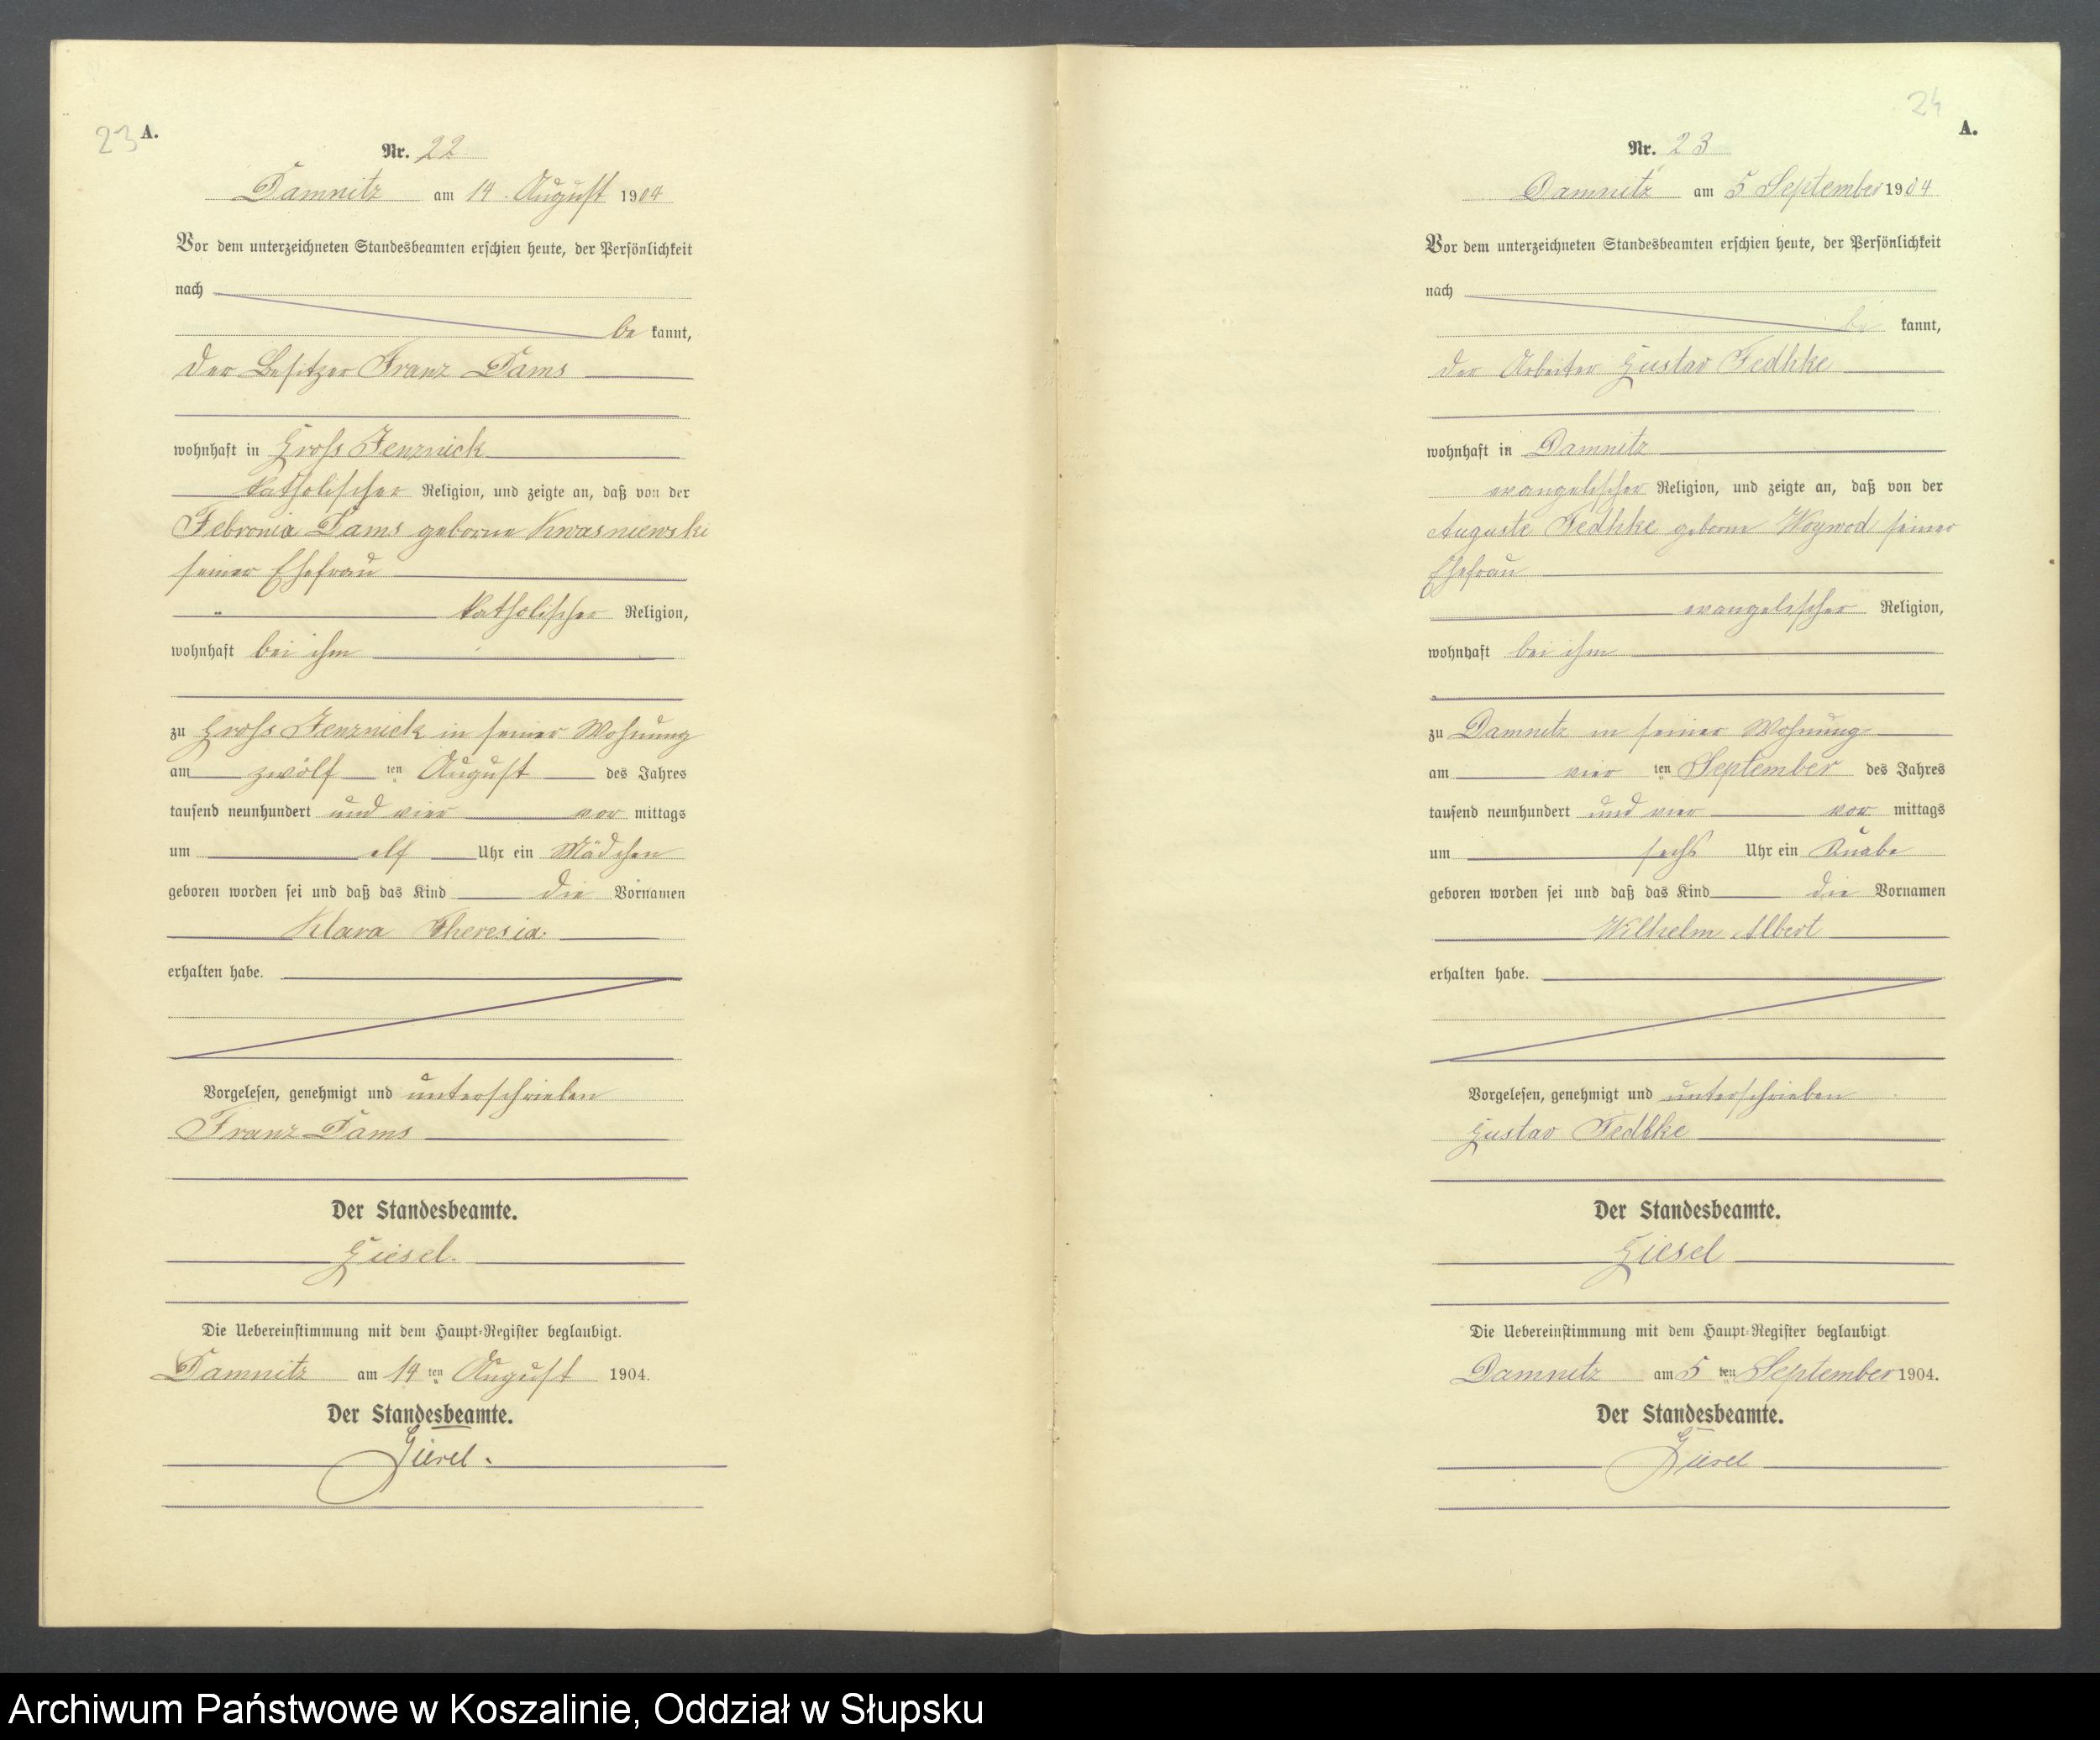 23 A.
Nr. 22
Damnitz am 14. August 1904
Vor dem unterzeichneten Standesbeamten erschien heute, der Persönlichkeit
nach
be kannt,
der Besitzer Franz Dams
wohnhaft in Gross Jenznick
katholischer Religion, und zeigte an, daß von der
Febronia Dams geborne Kwasniewski
seiner Ehefrau
katholischer Religion,
wohnhaft bei ihm
zu Gross Jenznick in seiner Wohnung
am zwölf ten August des Jahres
tausend neunhundert und vier vor mittags
um elf Uhr ein Mädchen
geboren worden sei und daß das Kind die Vornamen
Klara Theresia
erhalten habe.
Vorgelesen, genehmigt und unterschrieben
Franz Dams
Der Standesbeamte.
Giesel.
Die Uebereinstimmung mit dem Haupt-Register beglaubigt.
Damnitz am 14 ten August 1904.
Der Standesbeamte.
Giesel.
24
A.
Nr. 23
Damnitz am 5 September 1904
Vor dem unterzeichneten Standesbeamten erschien heute, der Persönlichkeit
nach
be kannt,
der Arbeiter Gustav Fedtke
wohnhaft in Damnitz
evangelischer Religion, und zeigte an, daß von der
Auguste Fedtke geborne Woywod seiner
Ehefrau
evangelischer Religion,
wohnhaft bei ihm
zu Damnitz in seiner Wohnung
am vier ten September des Jahres
tausend neunhundert und vier vor mittags
um sechs Uhr ein Knabe
geboren worden sei und daß das Kind die Vornamen
Wilhelm Albert
erhalten habe.
Vorgelesen, genehmigt und unterschrieben
Gustav Fedtke
Der Standesbeamte.
Giesel
Die Uebereinstimmung mit dem Haupt-Register beglaubigt
Damnitz am 5 ten September 1904.
Der Standesbeamte.
Giesel
Archiwum Państwowe w Koszalinie, Oddział w Słupsku